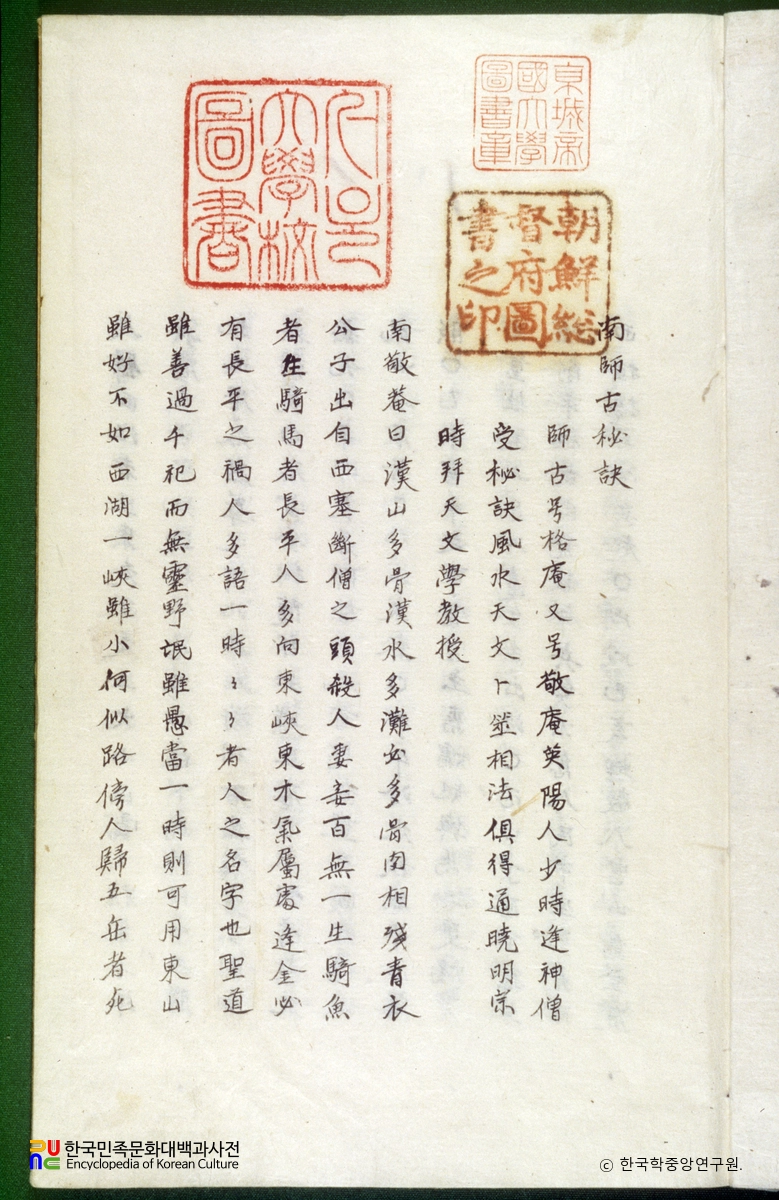 京城帝
國大學
圖書章
朝鮮総
督府圖
書之印
大學校
圖書
南師古秘訣
師古号格庵又号敬庵英陽人少時逢神僧
受秘訣風水天文卜筮相法俱得通曉明宗
時拜天文學教授
南敬菴曰漢山多骨漢水多灘必多骨肉相殘青衣
公子出自西塞斷僧之頭殺人妻妾百無一生騎魚
者生騎馬者長平人多向東峽東木氣屬處逢金必
有長平之禍人多語一時〻〻者人之名字也聖道
雖善過千祀而無靈野氓雖愚當一時則可用東山
雖好不如西湖一峽雖小何似路傍人歸五岳者死
한국민족문화대백과사전
Encyclopedia of Korean Culture
ⓒ 한국학중앙연구원.